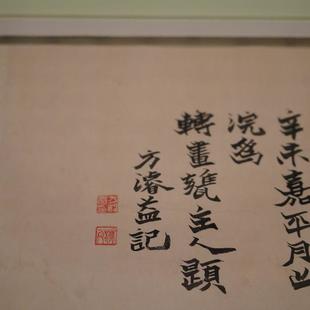 辛未嘉平月
浣爲
轉畫甕主人題
方濬益記